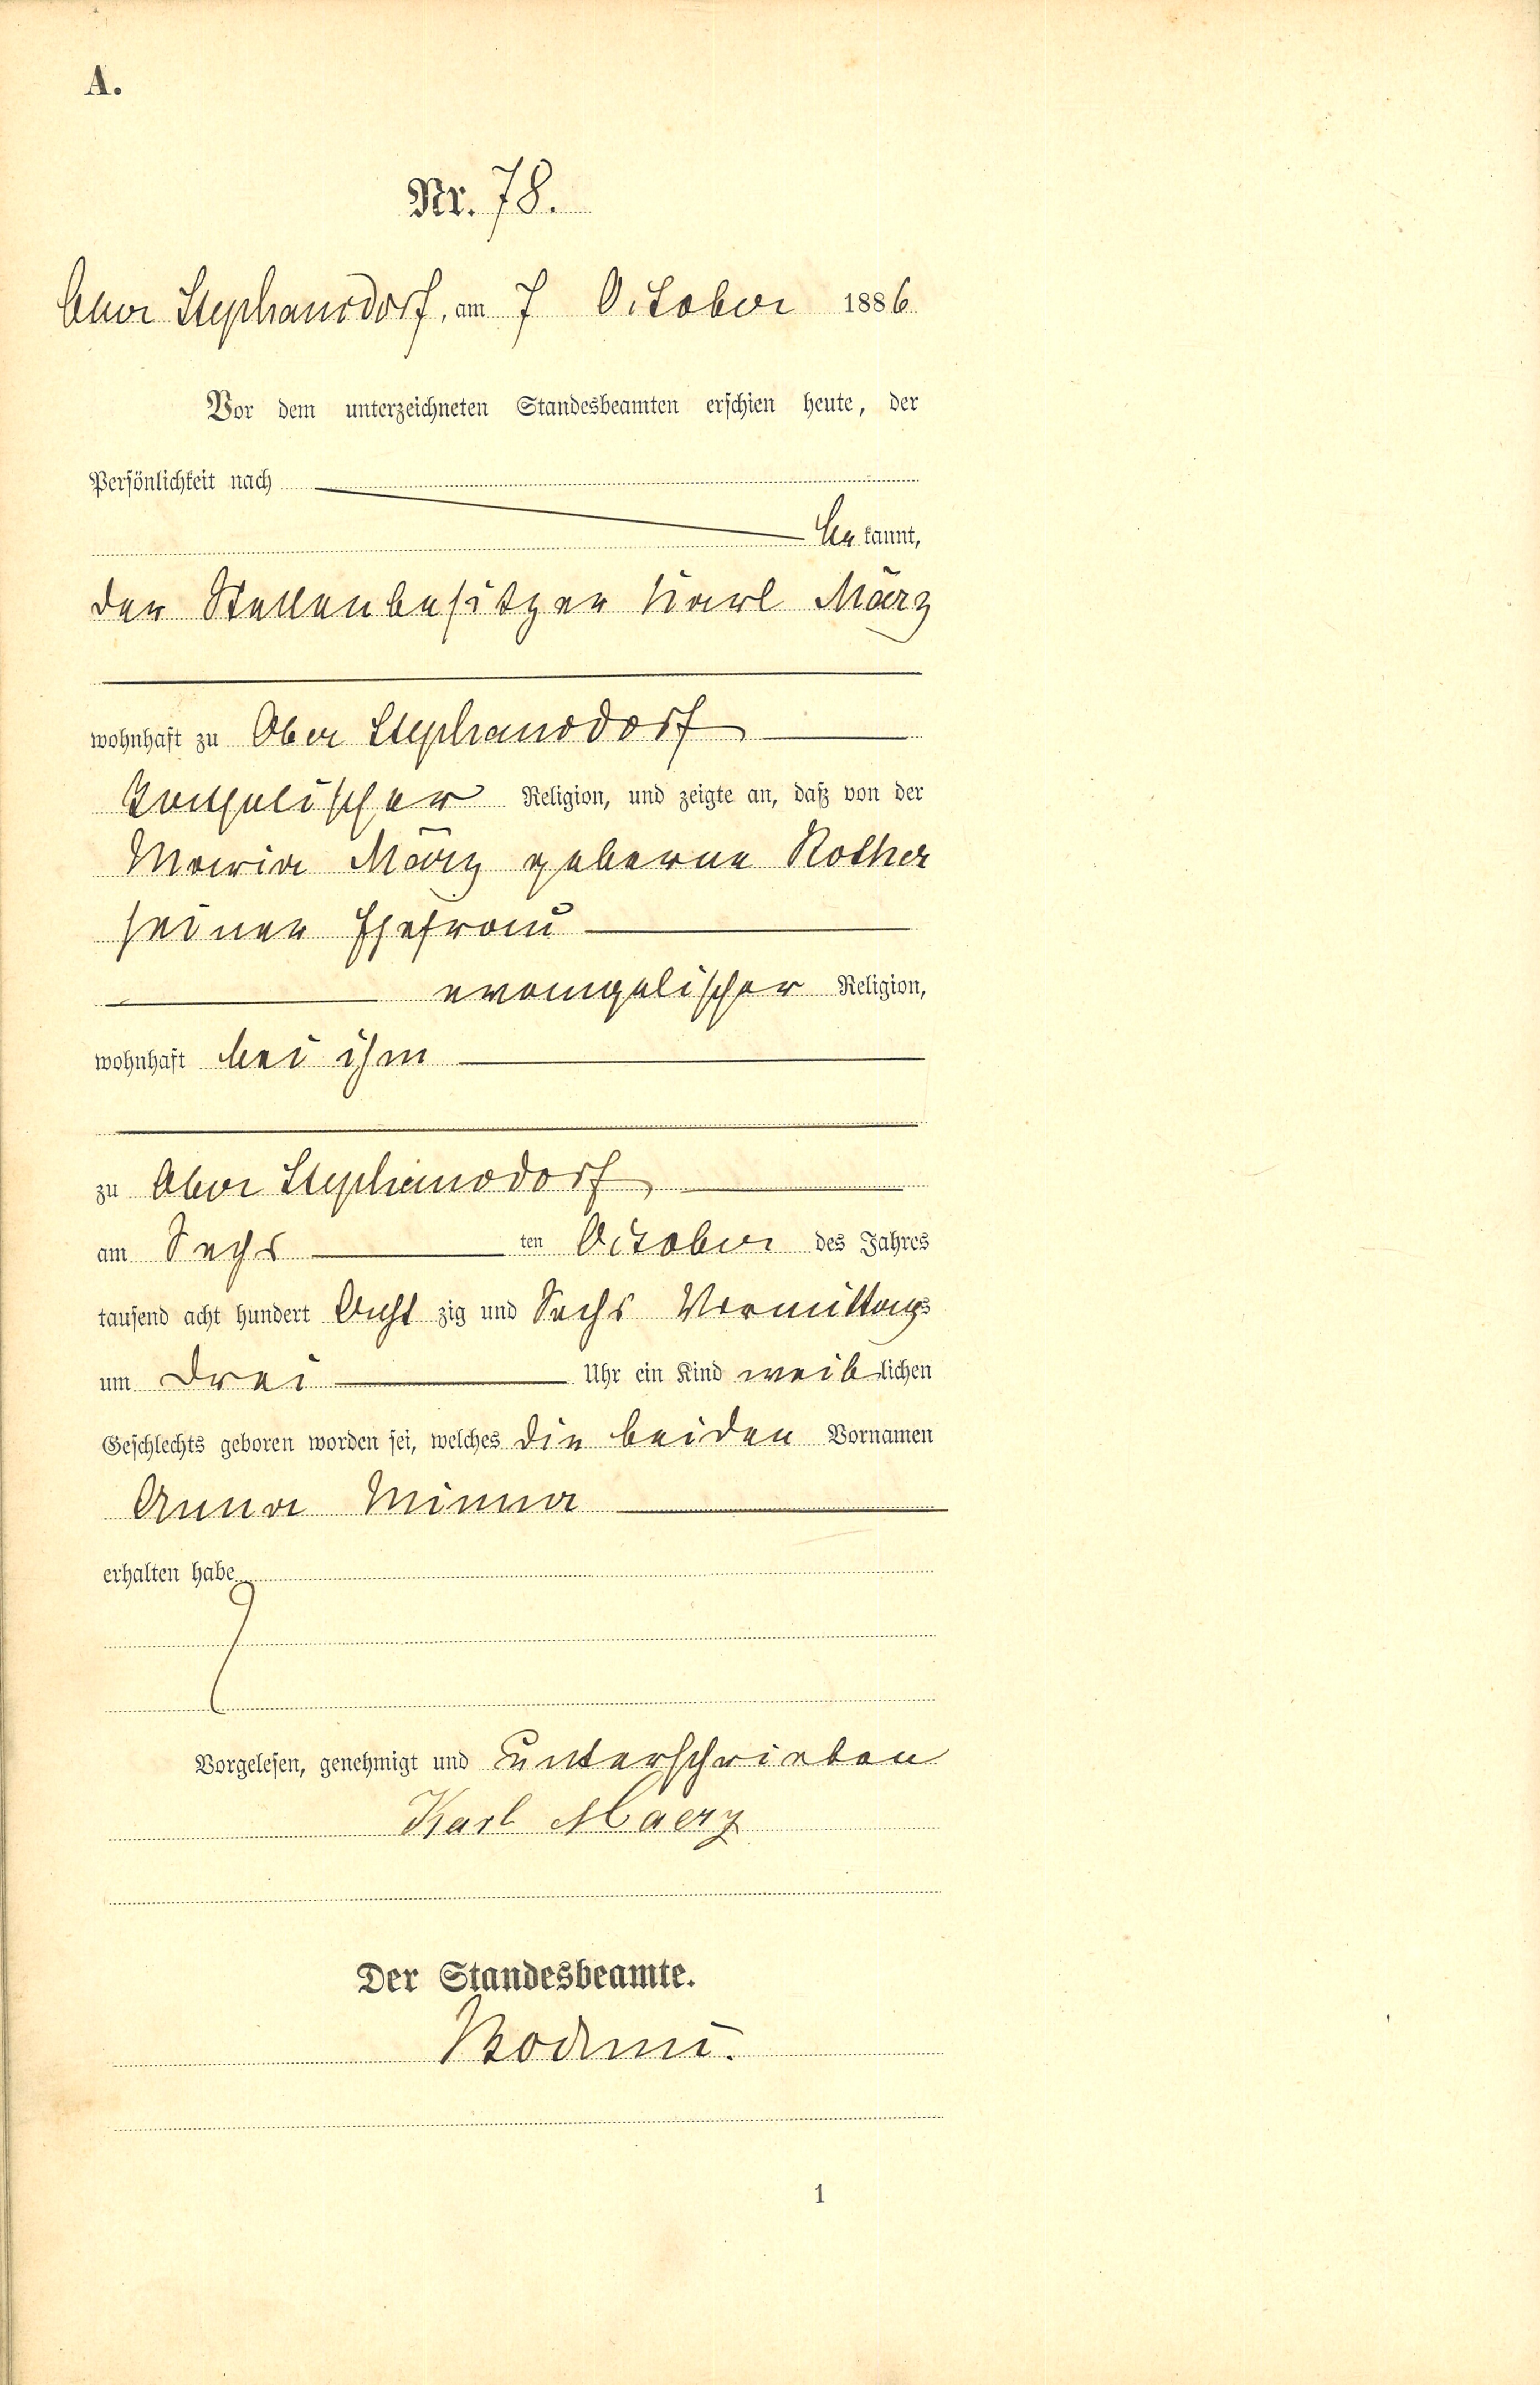 A.
Nr. 78.
Ober Stephansdorf, am 7 October 1886
Vor dem unterzeichneten Standesbeamten erschien heute, der
Persönlichkeit nach
be kannt,
der Stellenbesitzer Karl März
wohnhaft zu Ober Stephansdorf
katholischer Religion, und zeigte an, daß von der
Maria März geborne Rother
seiner Ehefrau
evangelischer Religion,
wohnhaft bei ihm
zu Ober Stephansdorf
am Sechs ten October des Jahres
tausend acht hundert Acht zig und Sechs Vormittags
um Drei Uhr ein Kind weib lichen
Geschlechts geboren worden sei, welches die beiden Vornamen
Anna Minna
erhalten habe
Vorgelesen, genehmigt und unterschrieben
Karl Maerz
Der Standesbeamte.
1